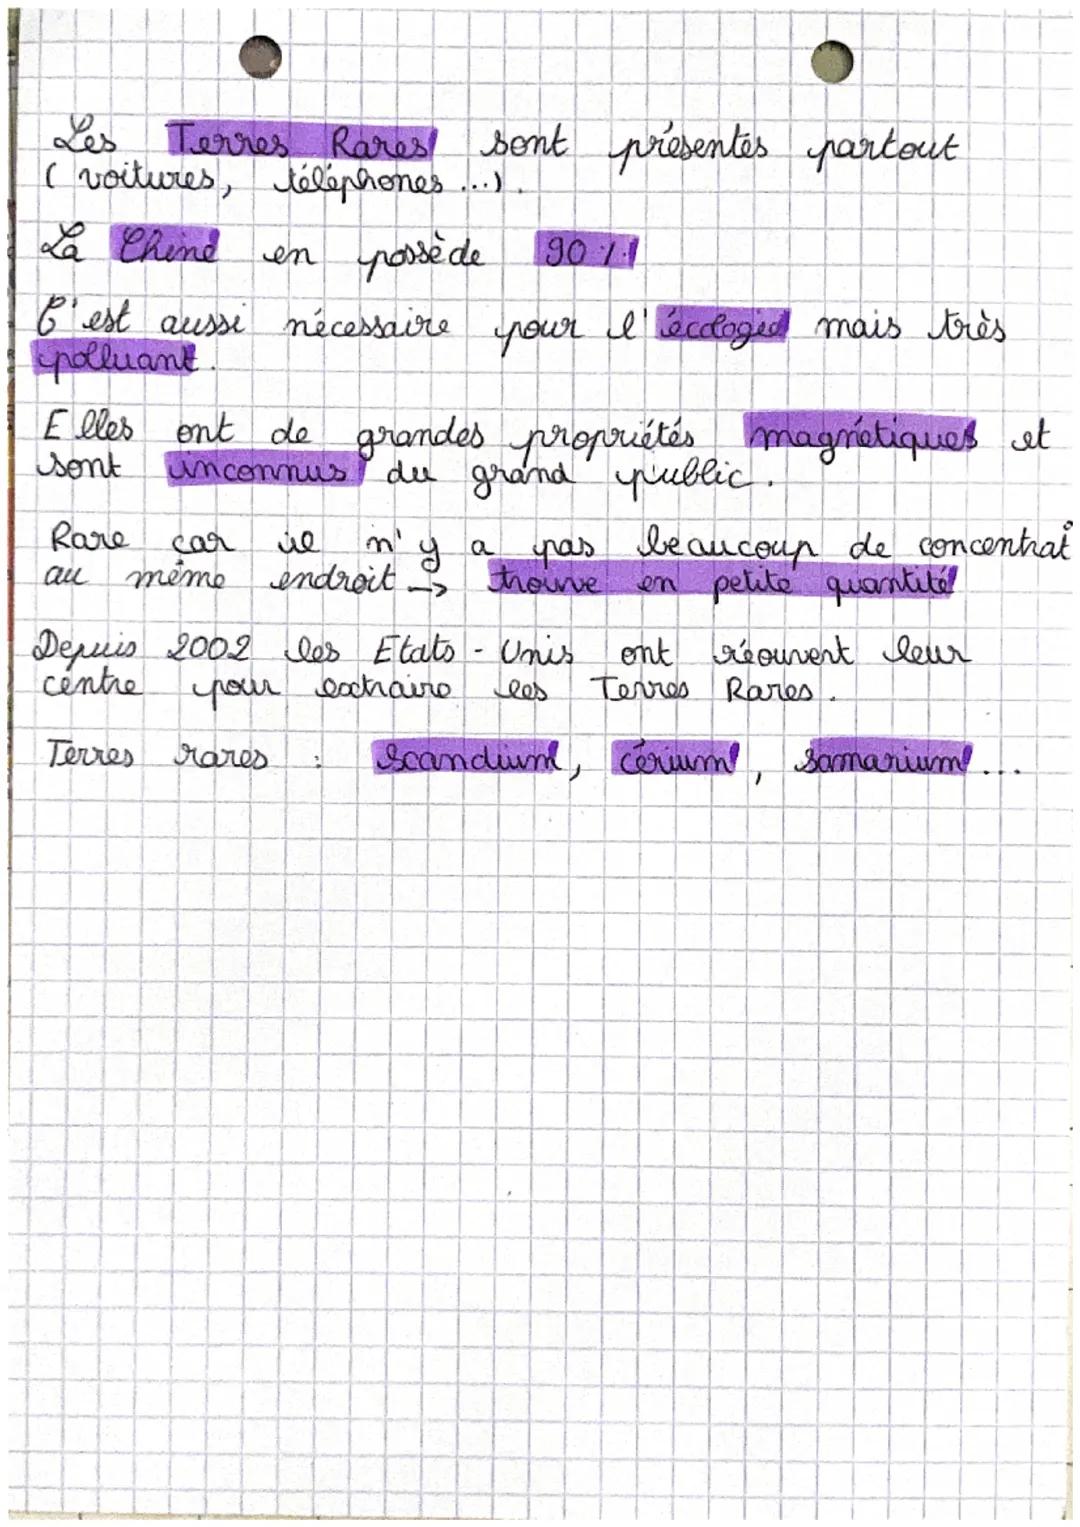 Les Terres Rares sont présentes partout
(voitures, téléphones ...).
La Chine en possède 90 %
C'est aussi nécessaire pour l'écologie mais très
polluant.
Elles ont de grandes propriétés magnétiques et
sont inconnus du grand public.
Rare car il n'y a pas beaucoup de concentrat°
au même endroit -> trouve en petite quantité
Depuis 2002 les Etats-Unis ont réouvert leur
centre pour extraire les Terres Rares.
Terres rares : Scandium, cérium, samarium ...